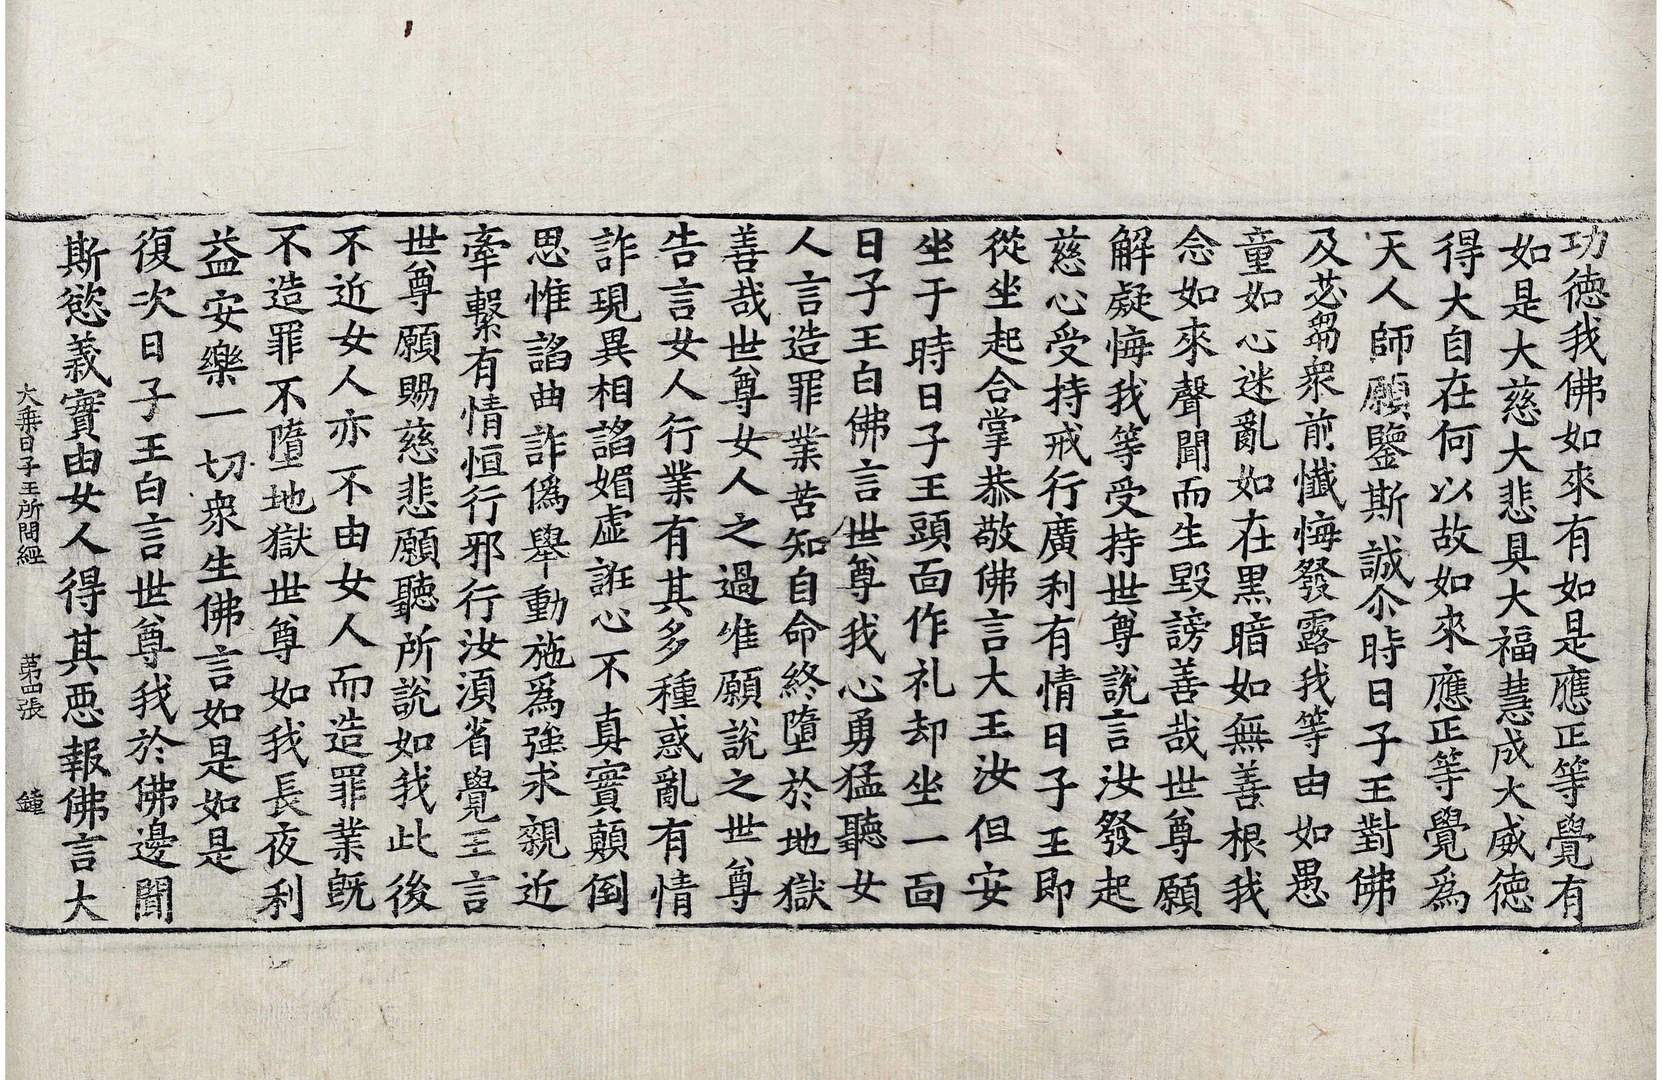 功徳我佛如來有如是應正等覺有
如是大慈大悲具大福慧成大威徳
得大自在何以故如來應正等覺爲
天人師願鑒斯誠尒時日子王對佛
及苾芻衆前懺悔發露我等由如愚
童如心迷亂如在黒暗如無善根我
念如來聲聞而生毀謗善哉世尊願
解疑悔我等受持世尊説言汝發起
慈心受持戒行廣利有情日子王即
從坐起合掌恭敬佛言大王汝但安
坐于時日子王頭面作礼却坐一面
日子王白佛言世尊我心勇猛聽女
人言造罪業苦知自命終墮於地獄
善哉世尊女人之過唯願說之世尊
告言女人行業有其多種惑亂有情
詐現異相諂媚虚誑心不真實顛倒
思惟諂曲詐僞舉動施爲強求親近
牽繫有情恒行邪行汝須省覺王言
世尊願賜慈悲願聽所説如我此後
不近女人亦不由女人而造罪業既
不造罪不墮地獄世尊如我長夜利
益安樂一切衆生佛言如是如是
復次日子王白言世尊我於佛邊聞
斯慾義實由女人得其悪報佛言大
大乘日子王所問經 苐四張 鍾